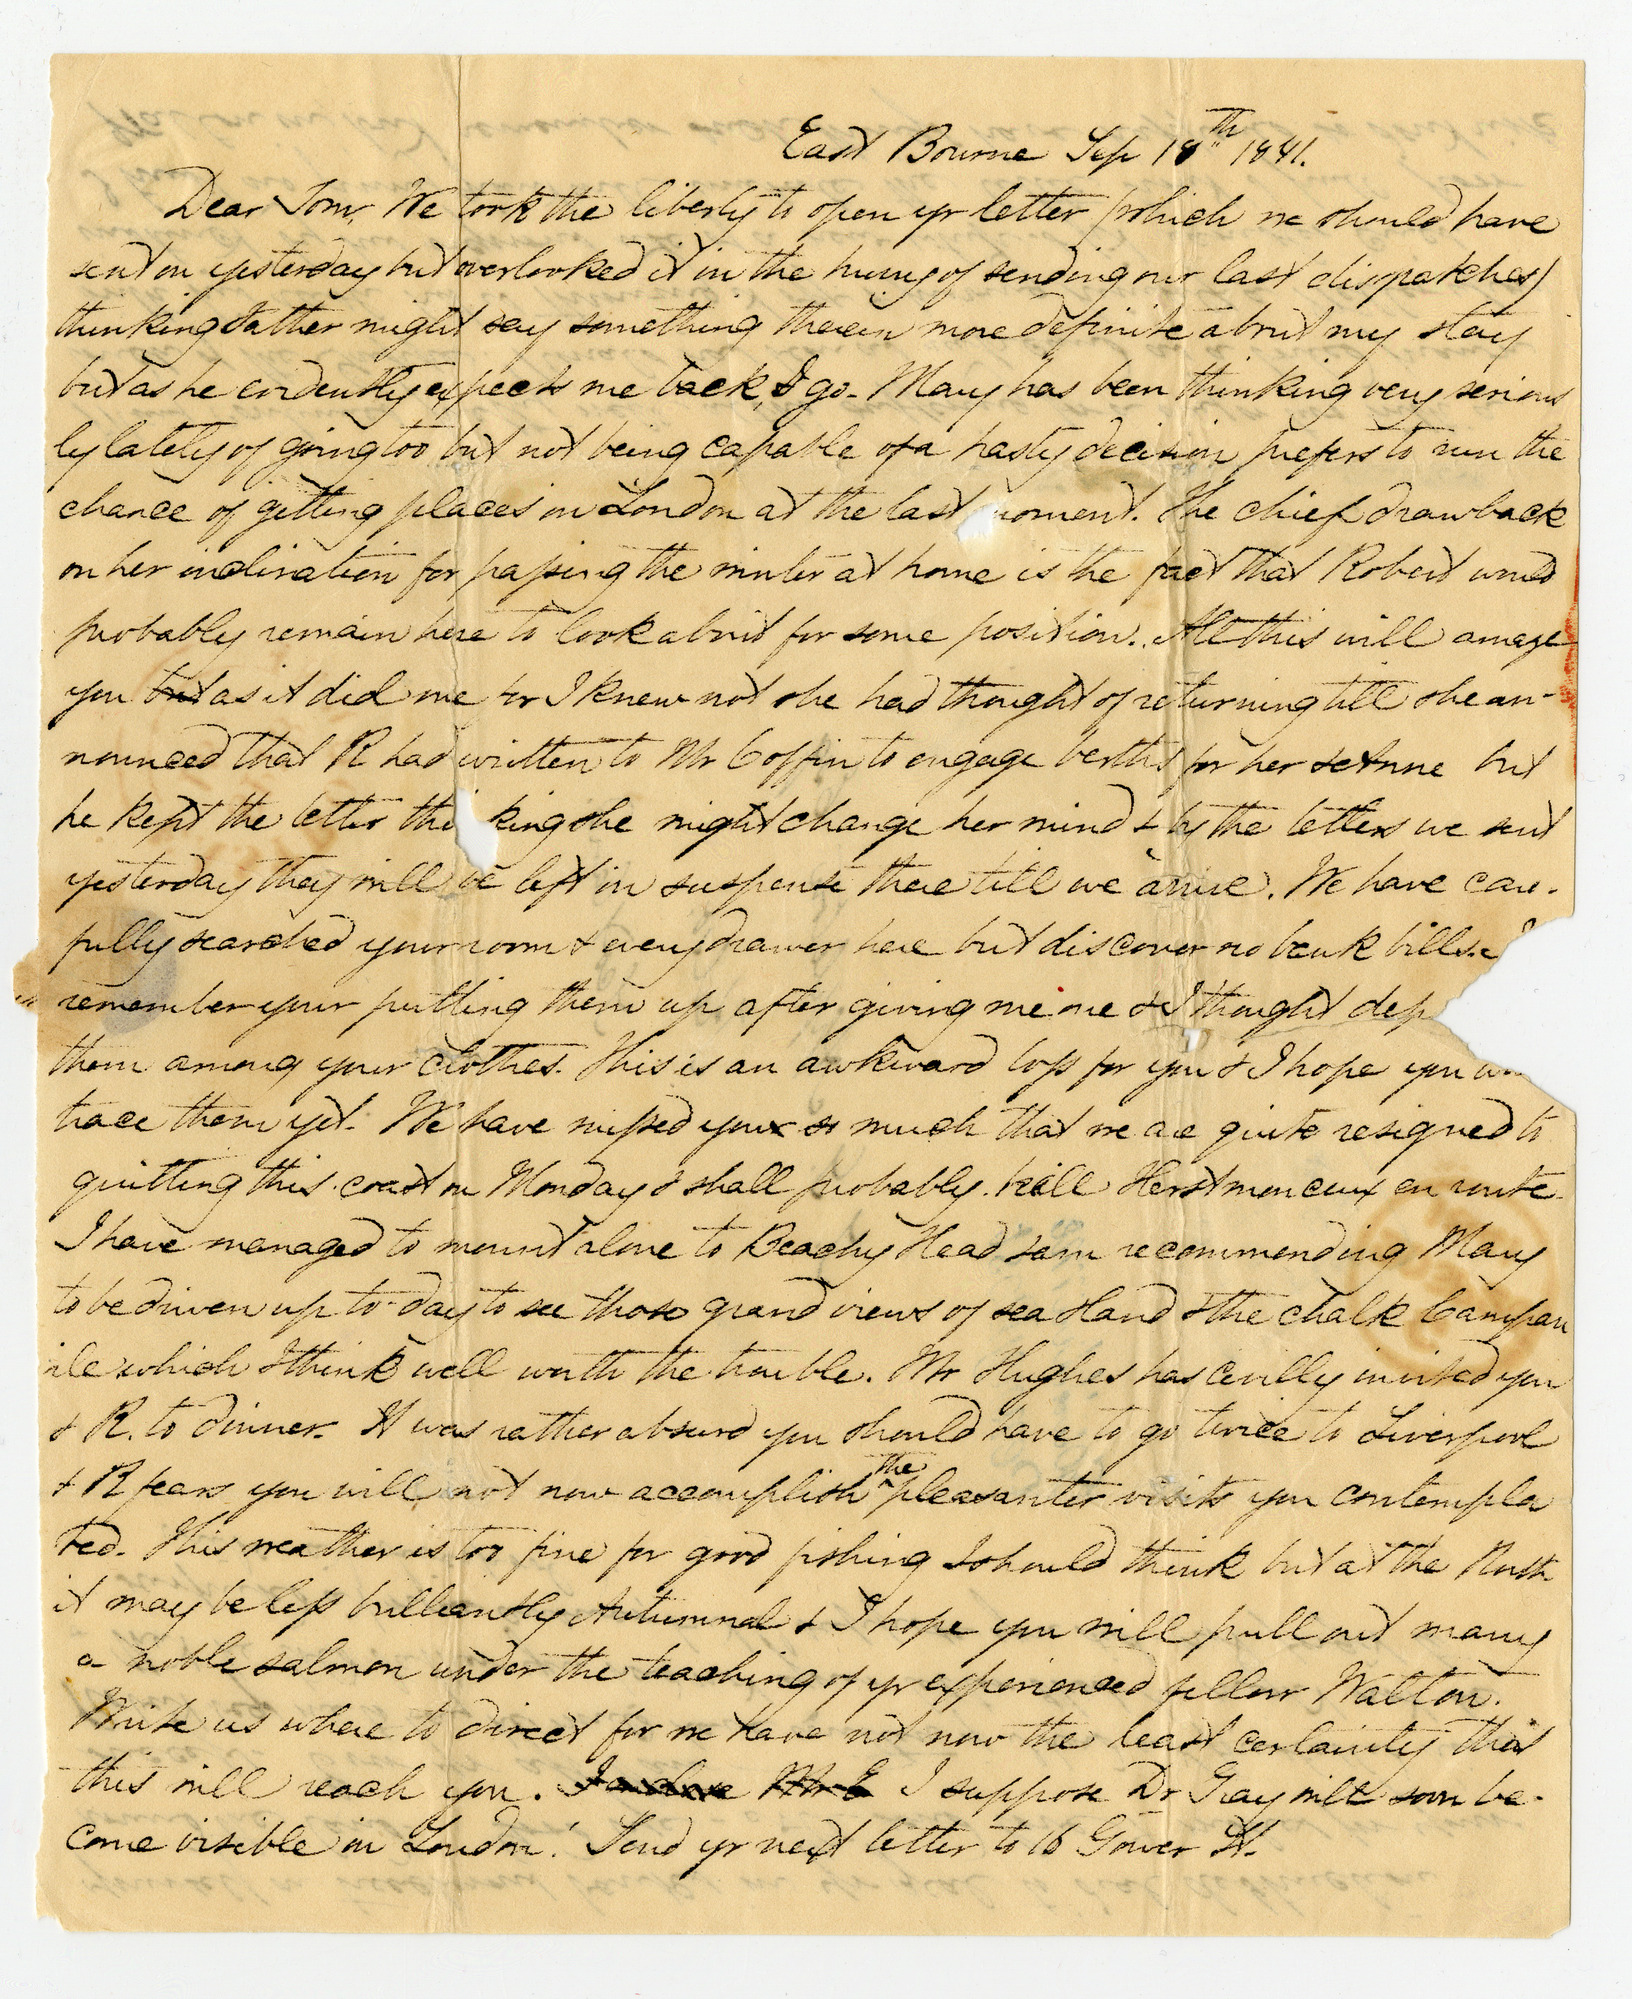 East Bourne Sep 18th 1841.
Dear Tom, We took the liberty to open yr letter (which we should have
sent on yesterday but overlooked it in the hurry of sending our last dispatches)
thinking Father might say something therein more definite about my stay
but as he evidently expects me back, I go. Mary has been thinking very serious
ly lately of going too but not being capable of a hasty decision prefers to run the
chance of getting places in London at the last moment. The chief drawback
on her inclination for passing the winter at home is the fact that Robert would
probably remain here to look about for some position. All this will amaze
you but as it did me for I knew not she had thought of returning till she an-
nounced that R had written to Mr Coffin to engage berths for her & Anne but
he kept the letter thi king she might change her mind & by the letters we sent
yesterday they will be left in suspense there till we arrive. We have care-
fully searched your room & every drawer here but discover no bank bills.
remember your putting them up after giving me one & I thought dep
them among your clothes. This is an awkward loss for you & I hope you
trace them yet. We have missed you so much that we are quite resigned to
quitting this coast on Monday & shall probably call Herstmonceux en route.
I have managed to mount alone to Beachy Head & am recommending Mary
to be driven up to-day to see those grand views of sea & land & the chalk Campan
ile which I think well worth the trouble. Mr Hughes has civilly invited you
& R. to dinner. It was rather absurd you should have to go twice to Liverpool
& R fears you will not now accomplish the pleasanter visits you contempla
ted. This weather is too fine for good fishing I should think but at the North
it may be less brilliantly Autumnal & I hope you will pull out many
a noble salmon under the teaching of yr experienced fellow Walton.
Write us where to direct for we have not now the least certainty that
this will reach you. I suppose Dr Gray will soon be-
come visible in London! Send yr next letter to 16 Gower St.